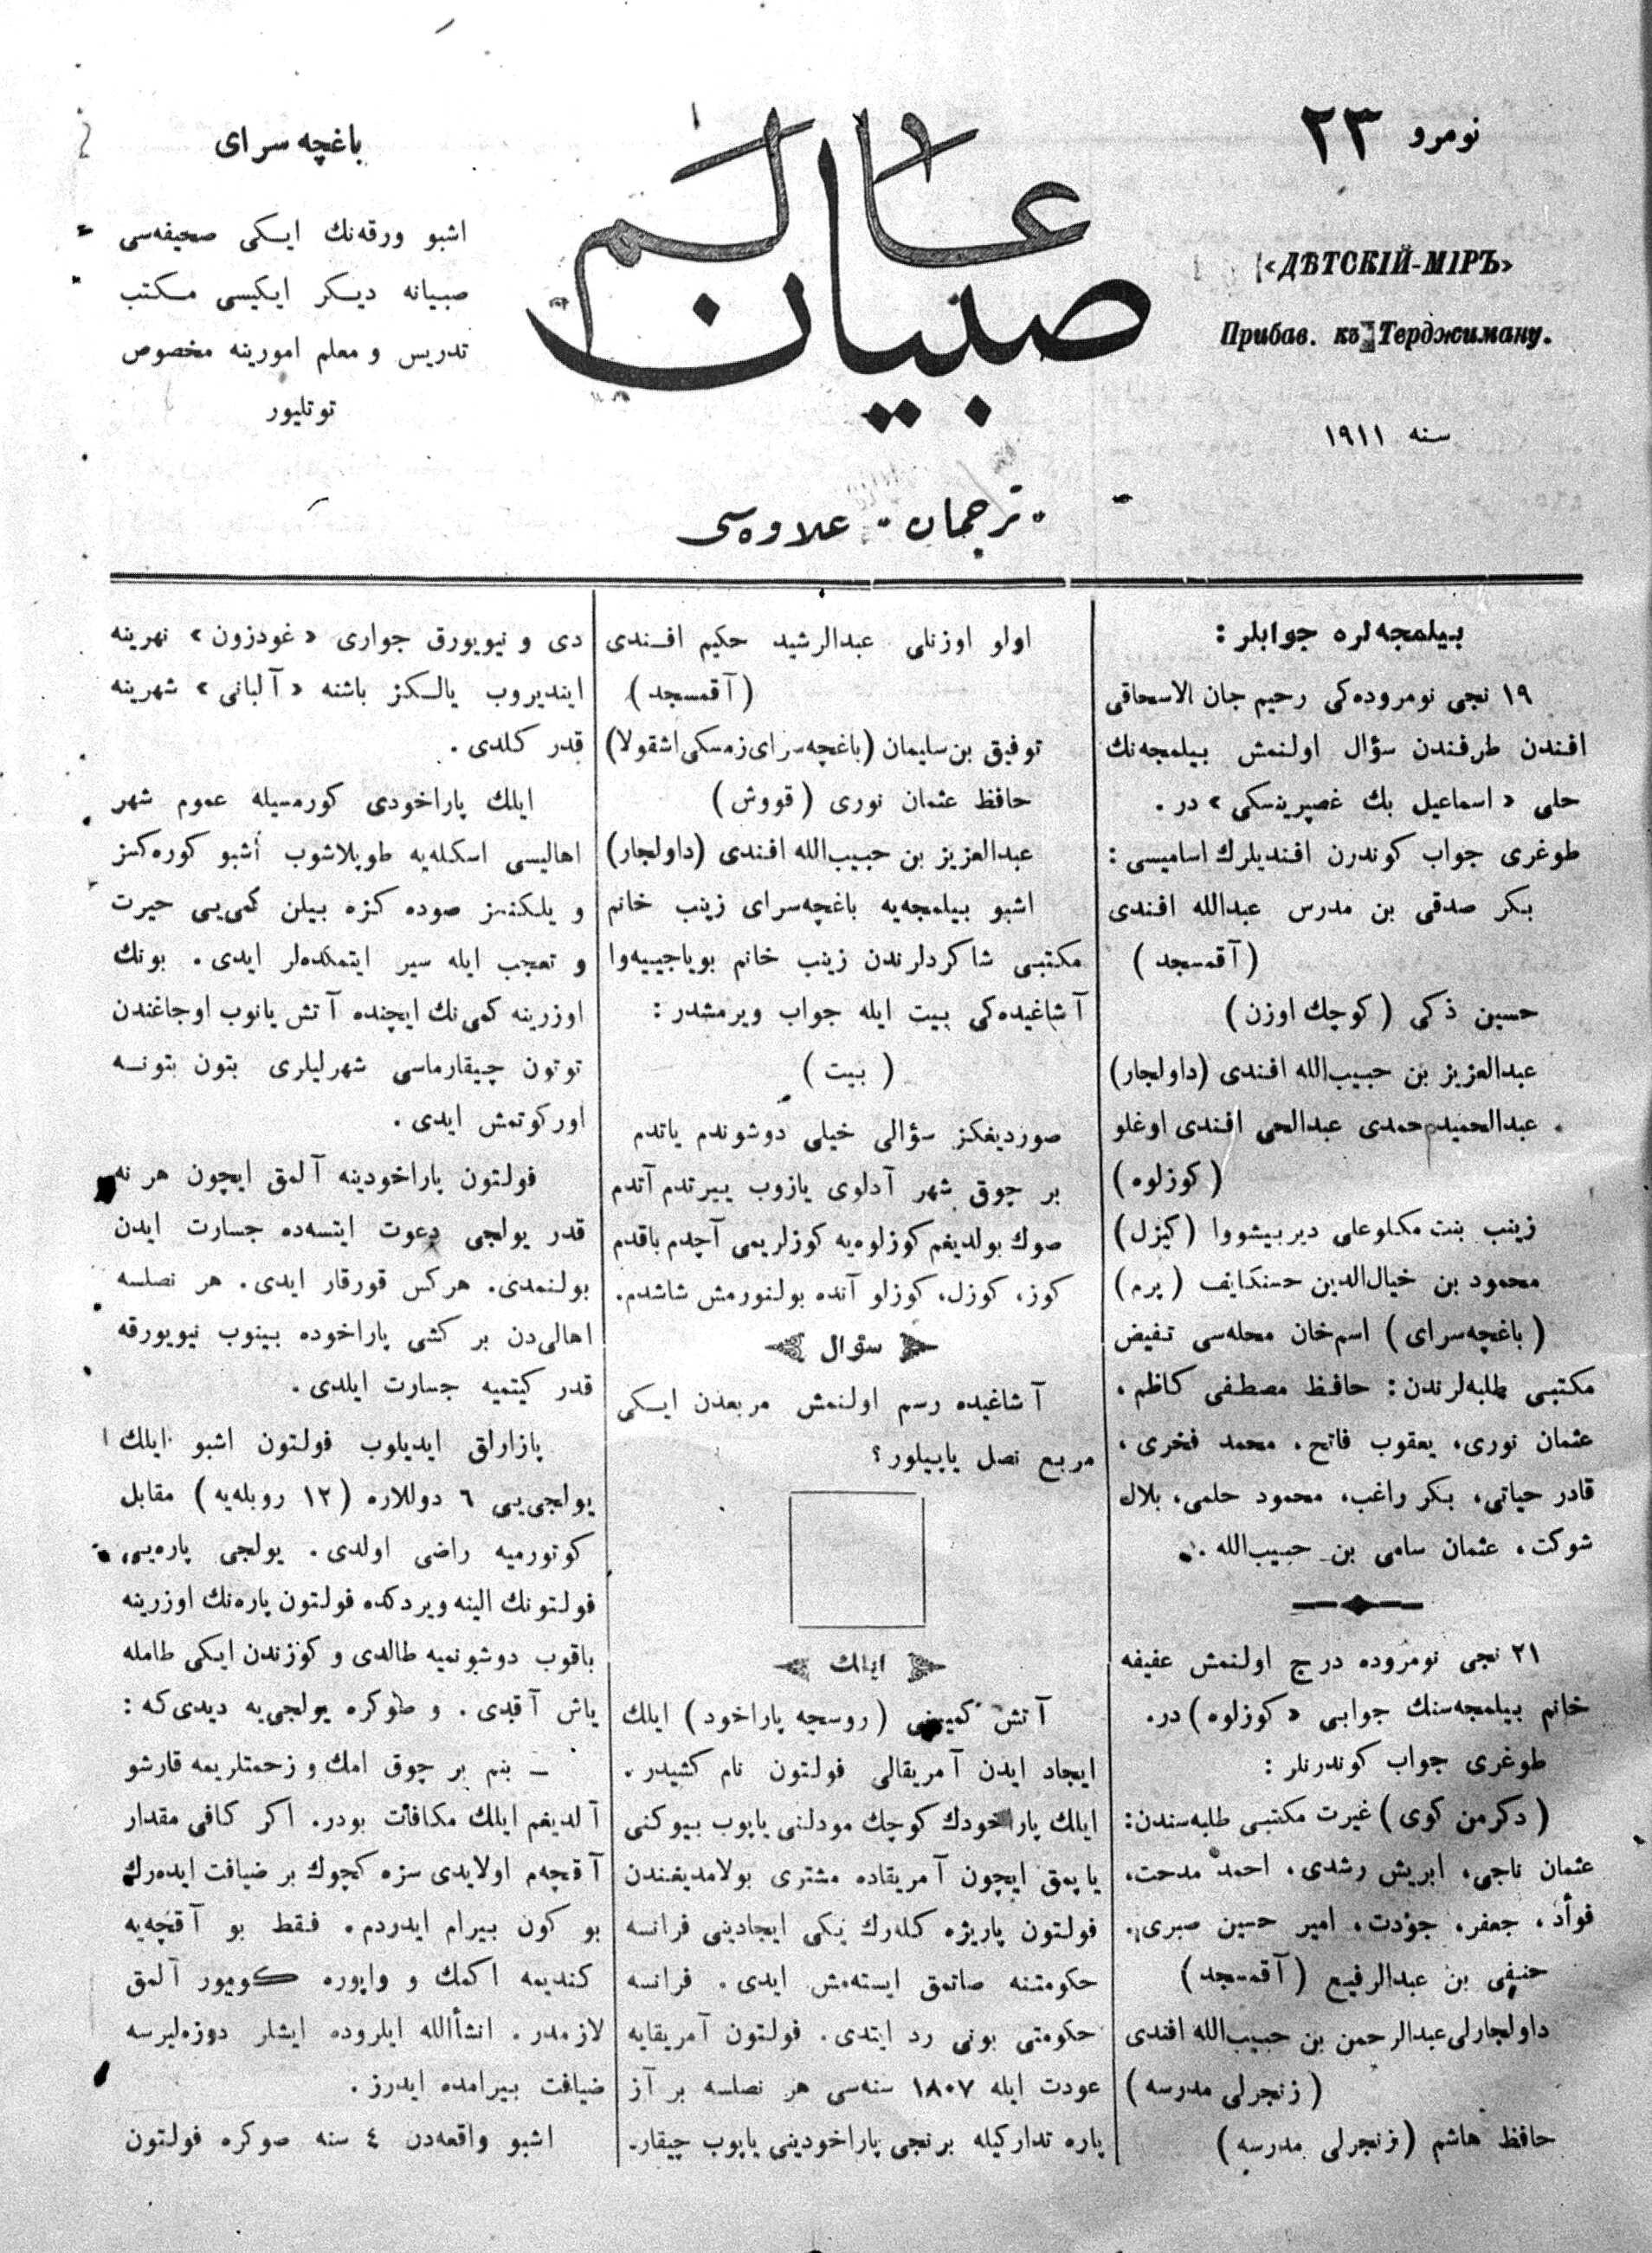 نومرو ٢٣
«ДѢТСКІЙ-МІРЪ»
Прибав. къ Терджиману.
سنه ١٩١١
عالم صبيان
ترجمان - علاوه‌سی
باغچه سرای
اشبو ورقه‌نك ایكی صحیفه‌سی
صبیانه دیكر ایكیسی مكتب
تدریس و معلم امورینه مخصوص
توتلیور
بیلمجه‌لره جوابلر :
١٩ نجی نومروده‌كی رحیم جان الاسحاقی
افندن طرفندن سؤال اولنمش بیلمجه‌نك
حلی « اسماعیل بك غصپرینسكی » در .
طوغری جواب كوندرن افندیلرك اسامیسی :
بكر صدقی بن مدرس عبدالله افندی
( آقمسجد )
حسین ذكی ( كوچك اوزن )
عبدالعزیز بن حبیب‌الله افندی (داولجار)
عبدالحمید حمدی عبدالحی افندی اوغلو
( كوزلوه )
زینب بنت مكلوعلی دیربیشووا ( كیزل )
محمود بن خیال‌الدین حسنكایف ( پرم )
( باغچه‌سرای ) اسم‌خان محله‌سی تفیض
مكتبی طلبه‌لرندن : حافظ مصطفی كاظم ،
عثمان نوری ، یعقوب فاتح ، محمد فخری ،
قادر حیاتی ، بكر راغب ، محمود حلمی ، بلال
شوكت ، عثمان سامی بن حبیب‌الله .
٢١ نجی نومروده درج اولنمش عفیفه
خانم بیلمجه‌سنك جوابی « كوزلوه ) در .
طوغری جواب كوندرنلر :
( دكرمن كوی ) غیرت مكتبی طلبه‌سندن :
عثمان ناجی ، ابریش رشدی ، احمد مدحت ،
فوأد ، جعفر ، جؤدت ، امیر حسین صبری .
حنیفی بن عبدالرفیع ( آقمسجد )
داولجارلی عبدالرحمن بن حبیب‌الله افندی
( زنجرلی مدرسه )
حافظ هاشم ( زنجرلی مدرسه )
اولو اوزنلی عبدالرشید حكیم افندی
( آقمسجد )
توفیق بن سلیمان (باغچه‌سرای زمسكی اشقولا)
حافظ عثمان نوری ( قووش )
عبدالعزیز بن حبیب‌الله افندی (داولجار)
اشبو بیلمجه‌یه باغچه‌سرای زینب خانم
مكتبی شاكردلرندن زینب خانم بویاجییه‌وا
آشاغیده‌كی بیت ایله جواب ویرمشدر :
( بیت )
صوردیغكز سؤالی خیلی دوشوندم یاتدم
بر چوق شهر آدلوی یازوب ییرتدم آتدم
صوك بولدیغم كوزلوه‌یه كوزلریمی آچدم باقدم
كوز ، كوزل ، كوزلو آنده بولنورمش شاشدم .
سؤال
آشاغیده رسم اولنمش مربعدن ایكی
مربع نصل یاپیلور ؟
ایلك
آتش كمیسنی ( روسچه پاراخود ) ایلك
ایجاد ایدن آمریقالی فولتون نام كشیدر .
ایلك پاراخودك كوچك مودلنی یاپوب بیوكنی
یاپمق ایچون آمریقاده مشتری بولامدیغندن
فولتون پاریژه كله‌رك یكی ایجادینی فرانسه
حكومتنه صاتمق ایسته‌مش ایدی . فرانسه
حكومتی بونی رد ایتدی . فولتون آمریقایه
عودت ایله ١٨٠٧ سنه‌سی هر نصلسه بر آز
پاره تداركیله برنجی پاراخودینی یاپوب چیقار-
دی و نیویورق جواری « غودزون » نهرینه
ایندیروب یالكز باشنه « آلبانی » شهرینه
قدر كلدی .
ایلك پاراخودی كورمسیله عموم شهر
اهالیسی اسكله‌یه طوپلاشوب اشبو كوره‌كسز
و یلكنسز صوده كزه بیلن كمی‌یی حیرت
و تعجب ایله سیر ایتمكده‌لر ایدی . بونك
اوزرینه كمی‌نك ایچنده آتش یانوب اوجاغندن
توتون چیقارماسی شهرلیلری بتون بتونسه
اوركوتمش ایدی .
فولتون پاراخودینه آلمق ایچون هر نه
قدر یولجی دعوت ایتسه‌ده جسارت ایدن
بولنمدی . هركس قورقار ایدی . هر نصلسه
اهالی‌دن بر كشی پاراخوده بینوب نیویورقه
قدر كیتمیه جسارت ایلدی .
پازارلق ایدیلوب فولتون اشبو ایلك
یولجی‌یی ٦ دوللاره ( ١٢ روبله‌یه ) مقابل
كوتورمیه راضی اولدی . یولجی پاره‌یی
فولتونك الینه ویردكده فولتون پاره‌نك اوزرینه
باقوب دوشونمیه طالدی و كوزندن ایكی طامله
یاش آقدی . و صوكره یولجی‌یه دیدی‌كه :
— بنم بر چوق امك و زحمتلریمه قارشو
آلدیغم ایلك مكافأت بودر . اكر كافی مقدار
آقچه‌م اولایدی سزه كچوك بر ضیافت ایده‌رك
بو كون بیرام ایدردم . فقط بو آقچه‌یه
كندیمه اكمك و واپوره كومور آلمق
لازمدر . انشأالله ایلروده ایشلر دوزه‌لیرسه
ضیافت بیرامده ایدرز .
اشبو واقعه‌دن ٤ سنه صوكره فولتون